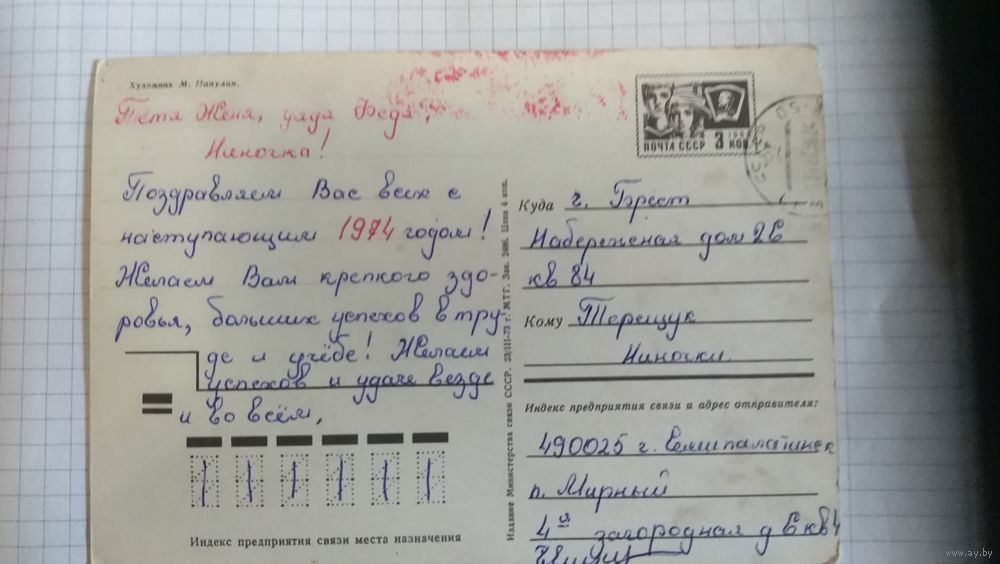 Художник М. Папулин.
Тётя Женя, дядя Федя,
Ниночка!
Поздравляем Вас всех с
наступающим 1974 годом!
Желаем Вам крепкого здо-
ровья, больших успехов в тру-
де и учёбе! Желаем
успехов и удачи везде
и во всём,
Индекс предприятия связи места назначения
Издание Министерства связи СССР. 23/III-73 г. МТГ. Зак. 2486. Цена 4 коп.
ПОЧТА СССР 3 КОП
Куда г. Брест
Набережная дом 26
кв 84
Кому Терещук
Ниночки
Индекс предприятия связи и адрес отправителя:
490025 г. Семипалатинск
п. Мирный
4я загородная д 6 кв 4
www.ay.by